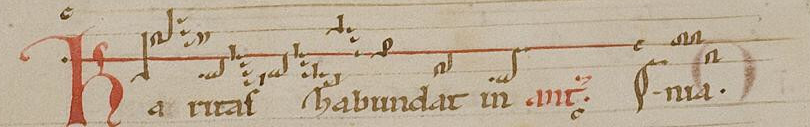 Karitas habundat in ant. S-nia.